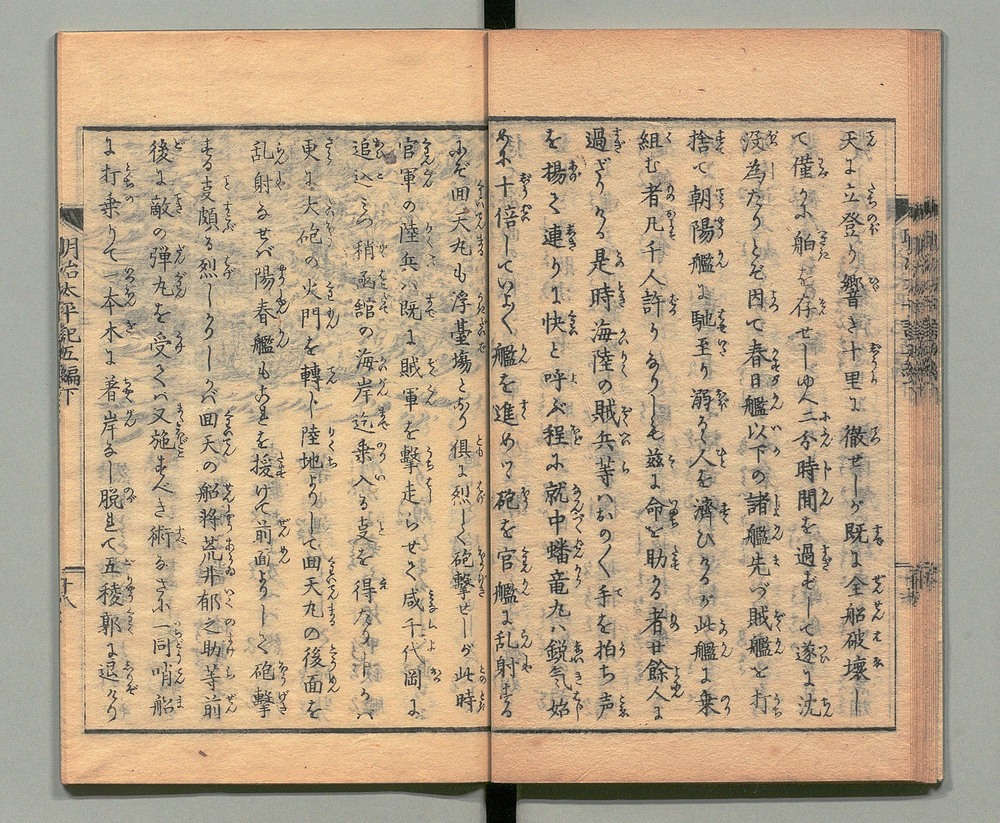 天に立登り響き十里に徹せしが既に全船破壊し
て僅かに舳を存せしゆへ二分時間を過ずして遂に沈
没為たりとぞ因て春日艦以下の諸艦先づ賊艦を打
捨て朝陽艦に馳至り溺るゝ人を済ひけるが此艦に乗
組む者凡千人許りありしも茲に命を助かる者廿余人に
過ざりける是時海陸の賊兵等ハおの〱手を拍ち声
を揚て連りに快と呼ぶ程に就中蟠竜丸ハ鋭気始
めに十倍していよ〱艦を進めつゝ砲を官艦に乱射する
にぞ回天丸も浮台場となり倶に烈しく砲撃せしが此時
官軍の陸兵ハ既に賊軍を撃走らせて咸千代岡に
追込みつ稍函館の海岸迄乗入る支を得たりしかバ
更に大砲の火門を転じ陸地よりして回天丸の後面を
乱射なせバ陽春艦もこれを援けて前面よりして砲撃
する支頗る烈しかりしかバ回天の船将荒井郁之助等前
後に敵の弾丸を受てハ又施すべき術なさに一同哨船
に打乗りて一本木に着岸なし脱れて五稜郭に退けり
明治太平記五編下
十八